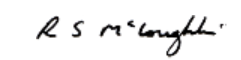 R S McLoughlin